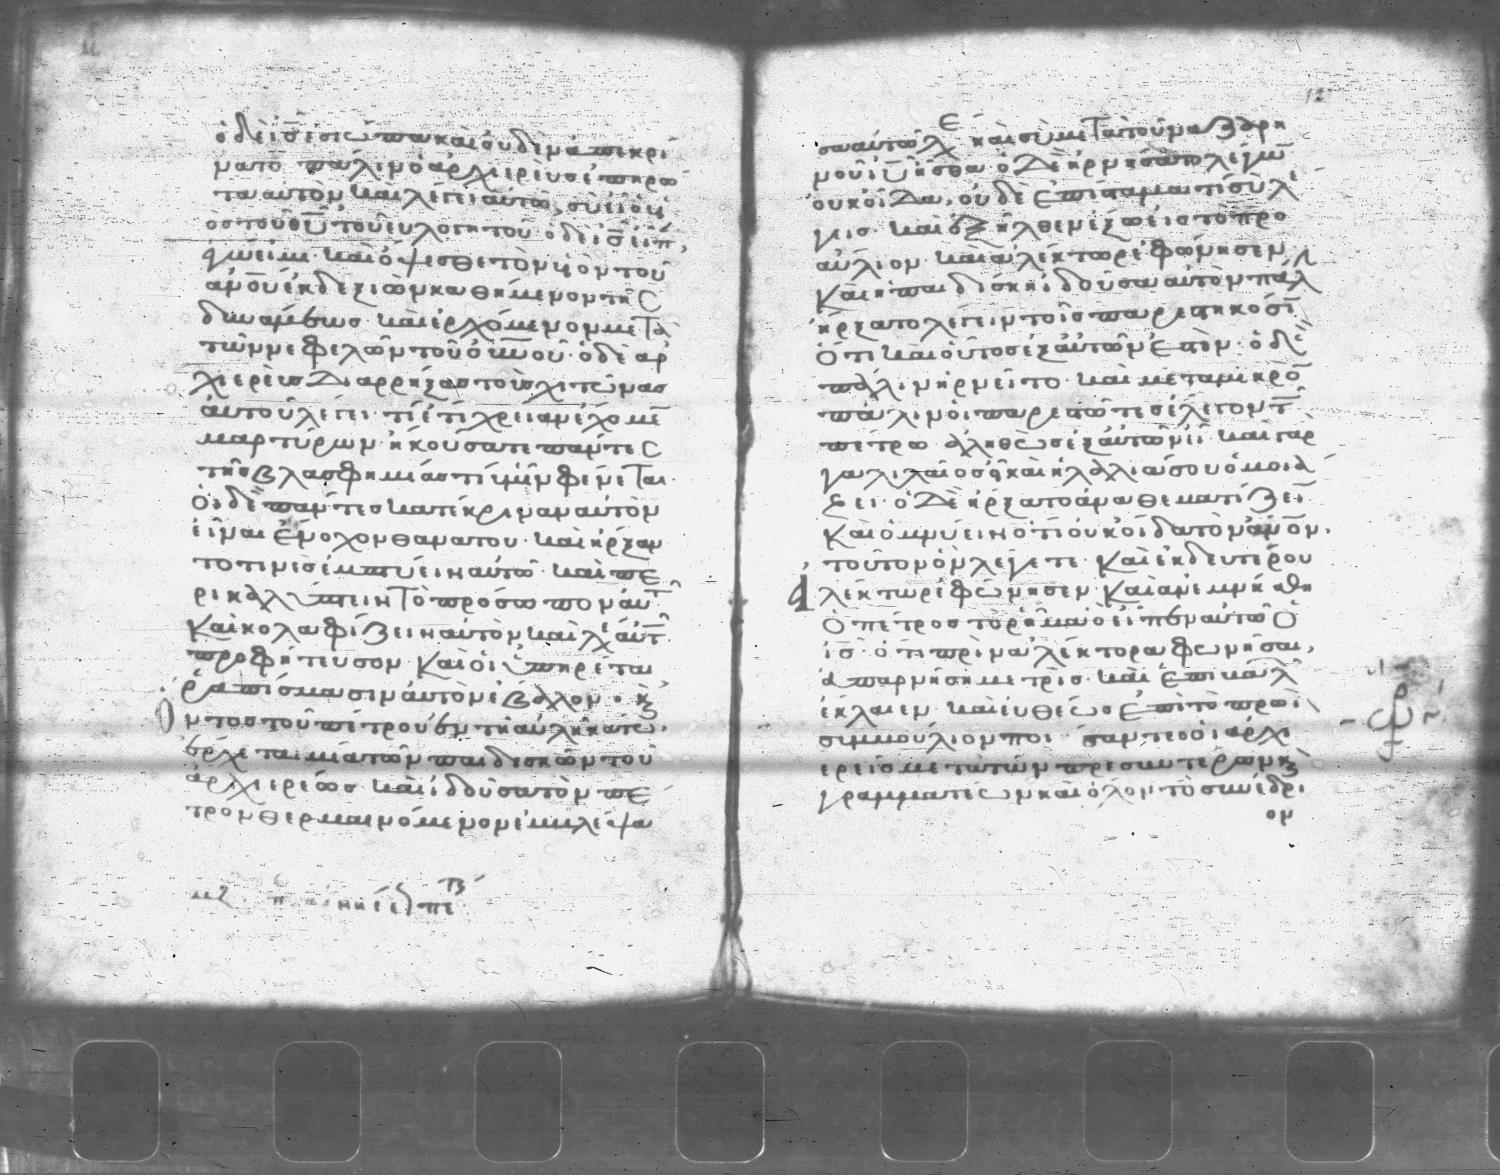 ὁ δὲ ἰ̅ς̅ ἐσιώπα καὶ οὐδὲν ἀπεκρί
νατο· πάλιν ὁ ἀρχιερεὺς ἐπηρώ
τα αὐτὸν καὶ λέγει αὐτῶ, σὺ εἶ ὁ υἱ
ὸς τοῦ θ̅υ̅ τοῦ εὐλογητοῦ· ὁ δὲ ἰ̅ς̅ εἶπ,
ἐγώ εἰμι· καὶ ὄψεσθε τὸν υἱὸν τοῦ
α̅ν̅ο̅υ̅ ἐκ δεξιῶν καθήμενον τῆς
δυνάμεως· καὶ ἐρχόμενον μετὰ
τῶν νεφελῶν τοῦ ο̅υ̅ν̅ο̅υ̅· ὁ δὲ ἀρ
χιερεὺς διαρρήξας τοὺς χιτῶνας
αὐτοῦ λέγει· τί ἔτι χρείαν ἔχομε̅
μαρτύρων· ἠκούσατε πάντες
τῆς βλασφημίας τί ὑμῖν φαίνεται·
Οἱ δὲ πάντες κατέκριναν αὐτὸν
εἶναι ἔνοχον θανάτου· καὶ ἤρξαν
τό τινες ἐμπτύειν αὐτῶ· καὶ πε
ρικαλύπτειν τὸ πρόσωπον αὐτ
Καὶ κολαφίζειν αὐτὸν καὶ λέ αὐτ
προφήτευσον· Καὶ οἱ ὑπηρέται
ῥαπίσμασιν αὐτὸν ἔβαλλον· κ
ὄντος τοῦ πέτρου ἐν τῆ αὐλῆ κάτω·
ἔρχεται μία τῶν παιδισκῶν τοῦ
ἀρχιερέως καὶ ἰδοῦσα τὸν πέ
τρον θερμαινόμενον ἐμβλέψα
σα αὐτῶ λέ καὶ σὺ μετὰ τοῦ ναζαρη
νοῦ ἰ̅υ̅ ἦσθα· ὁ δὲ ἠρνήσατο λέγων
οὐκ οἶδα, οὐδὲ ἐπίσταμαι τί σὺ λέ
γεις· καὶ ἐξῆλθεν ἔξω εἰς τὸ προ
αύλιον· καὶ ἀλέκτωρ ἐφώνησεν
Καὶ ἡ παιδίσκη ἰδοῦσα αὐτὸν πάλ
ἤρξατο λέγειν τοῖς παρεστηκόσι̅
Ὅτι καὶ οὗτος ἐξ αὐτῶν ἐστίν· ὁ δὲ
πάλιν ἠρνεῖτο· καὶ μετὰ μικρὸ̅
πάλιν οἱ παρεστῶτες ἔλεγον τ
πέτρω· ἀληθῶς ἐξ αὐτῶν εἶ καὶ γὰρ
γαλιλαῖος εἶ καὶ ἡ λαλιά σου ὁμοιά
ζει· ὁ δὲ ἤρξατο ἀναθεματίζει̅
Καὶ ὀμνύειν ὅτι οὐκ οἶδα τὸν α̅ν̅ο̅ν̅·
τοῦτον ὃν λέγετε· Καὶ ἐκ δευτέρου
ἀλέκτωρ ἐφώνησεν· Καὶ ἀνεμνήσθη
Ὁ πέτρος τὸ ῥῆμα ὃ εἶπεν αὐτῶ ὁ
ἰ̅ς̅· ὅτι πρὶν ἀλέκτορα φωνῆσαι,
ἀπαρνήση με τρίς· καὶ ἐπιβαλ
ἔκλαιεν· καὶ εὐθέως ἐπὶ τὸ πρωῒ
συμβούλιον ποι σαντες οἱ ἀρχι
ερεῖς μετὰ τῶν πρεσβυτέρων κ
γραμματέων καὶ ὅλον τὸ συνέδρι
ον